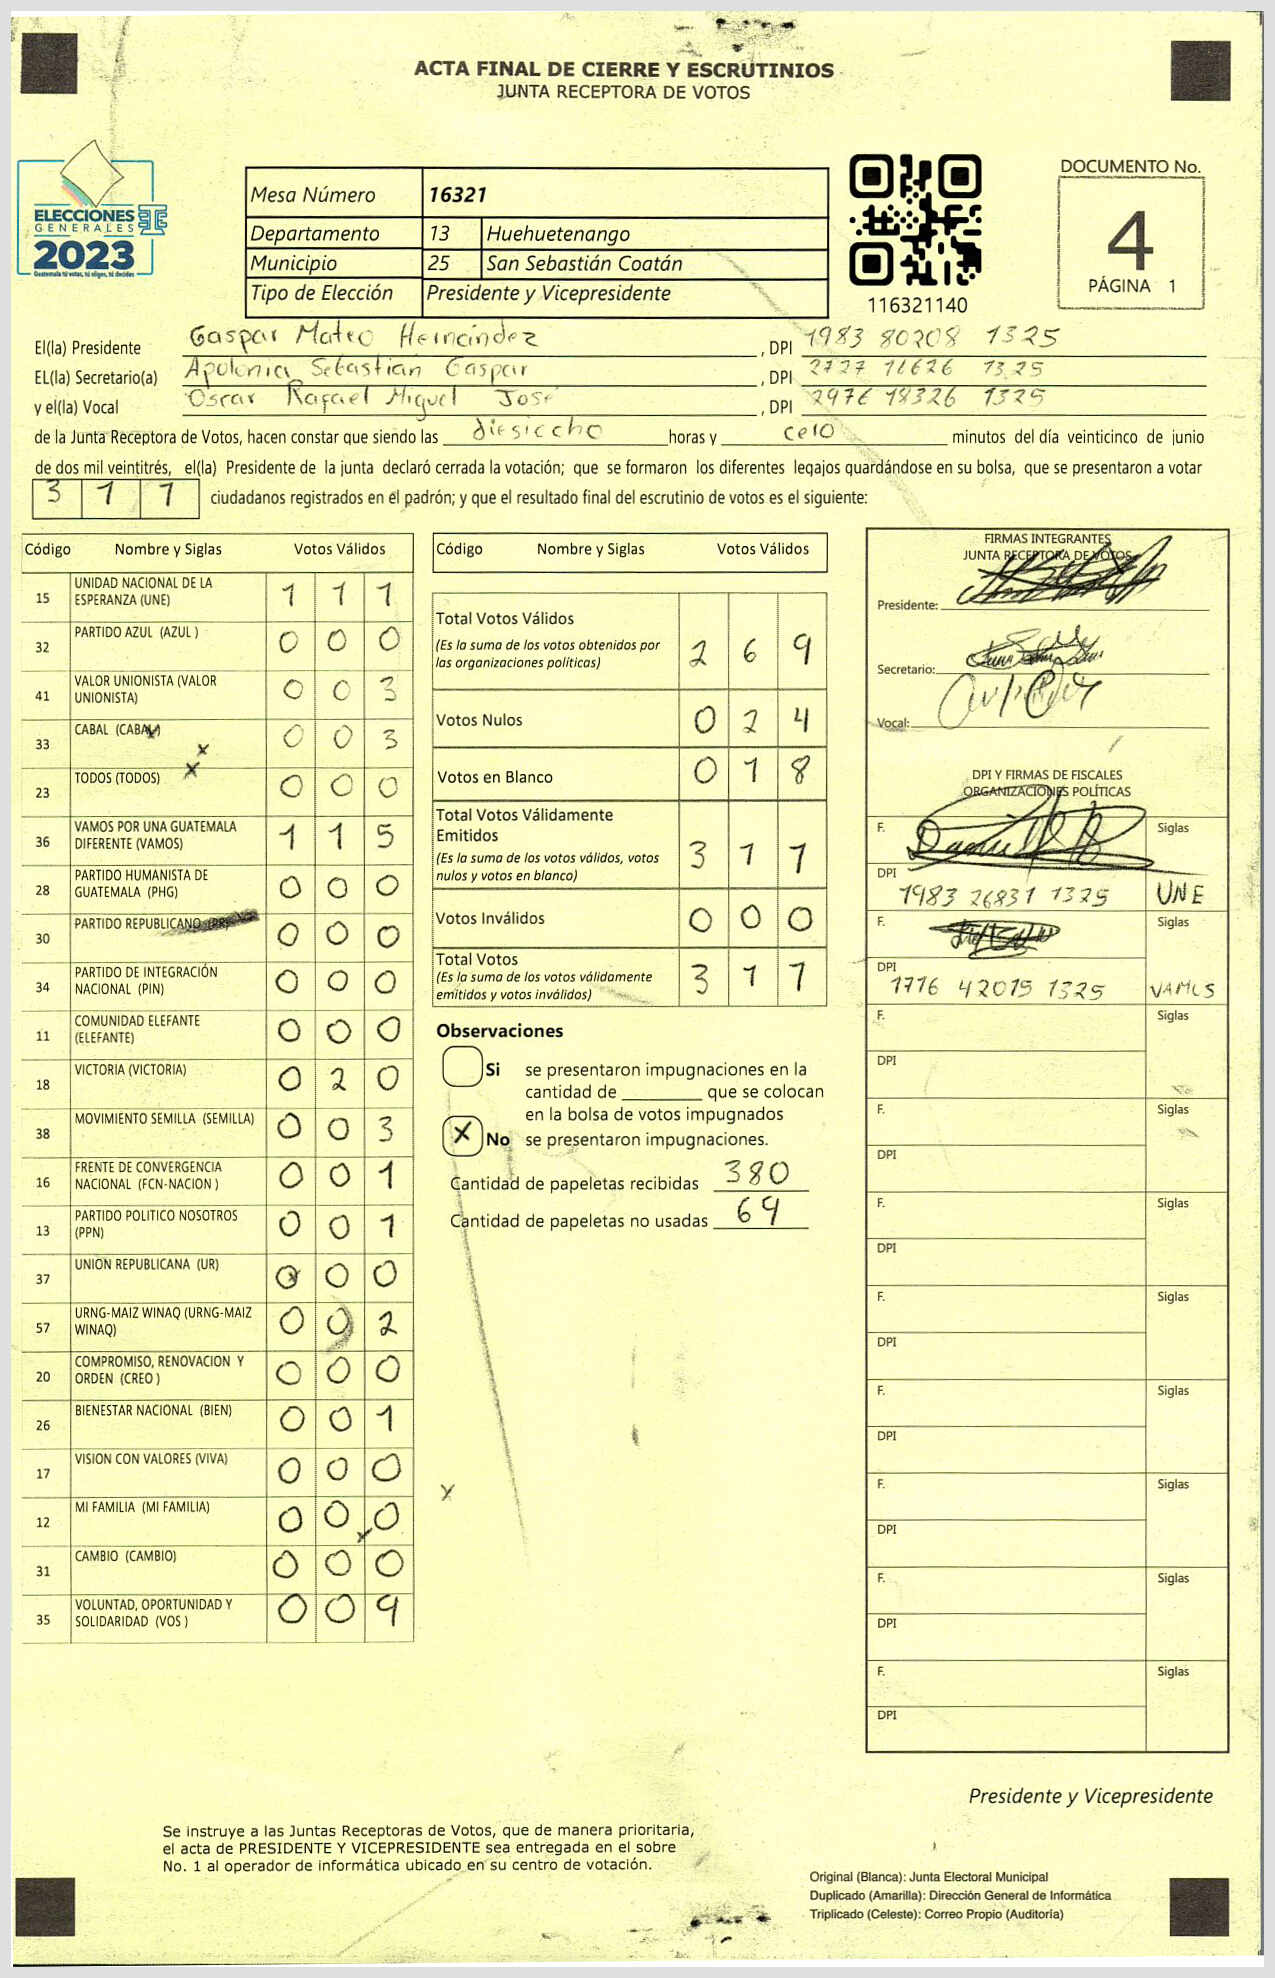 ACTA FINAL DE CIERRE Y ESCRUTINIOS
JUNTA RECEPTORA DE VOTOS
ELECCIONES
GENERALES
2023
Guatemala tú votas, tú eliges, tú decides
Mesa Número 16321
Departamento 13 Huehuetenango
Municipio 25 San Sebastián Coatán
Tipo de Elección Presidente y Vicepresidente
116321140
DOCUMENTO No.
4
PÁGINA 1
El(la) Presidente Gaspar Mateo Hernández , DPI 1983 80208 1325
EL(la) Secretario(a) Apolonia Sebastián Gaspar , DPI 2727 11626 1325
y el(la) Vocal Oscar Rafael Miguel José , DPI 2976 18326 1325
de la Junta Receptora de Votos, hacen constar que siendo las diesiocho horas y cero minutos del día veinticinco de junio
de dos mil veintitrés, el(la) Presidente de la junta declaró cerrada la votación; que se formaron los diferentes legajos guardándose en su bolsa, que se presentaron a votar
3 1 1 ciudadanos registrados en el padrón; y que el resultado final del escrutinio de votos es el siguiente:
Código Nombre y Siglas Votos Válidos
15 UNIDAD NACIONAL DE LA ESPERANZA (UNE) 1 1 1
32 PARTIDO AZUL (AZUL ) 0 0 0
41 VALOR UNIONISTA (VALOR UNIONISTA) 0 0 3
33 CABAL (CABAL) 0 0 3
23 TODOS (TODOS) 0 0 0
36 VAMOS POR UNA GUATEMALA DIFERENTE (VAMOS) 1 1 5
28 PARTIDO HUMANISTA DE GUATEMALA (PHG) 0 0 0
30 PARTIDO REPUBLICANO (PR) 0 0 0
34 PARTIDO DE INTEGRACIÓN NACIONAL (PIN) 0 0 0
11 COMUNIDAD ELEFANTE (ELEFANTE) 0 0 0
18 VICTORIA (VICTORIA) 0 2 0
38 MOVIMIENTO SEMILLA (SEMILLA) 0 0 3
16 FRENTE DE CONVERGENCIA NACIONAL (FCN-NACION ) 0 0 1
13 PARTIDO POLITICO NOSOTROS (PPN) 0 0 1
37 UNION REPUBLICANA (UR) 0 0 0
57 URNG-MAIZ WINAQ (URNG-MAIZ WINAQ) 0 0 2
20 COMPROMISO, RENOVACION Y ORDEN (CREO ) 0 0 0
26 BIENESTAR NACIONAL (BIEN) 0 0 1
17 VISION CON VALORES (VIVA) 0 0 0
12 MI FAMILIA (MI FAMILIA) 0 0 0
31 CAMBIO (CAMBIO) 0 0 0
35 VOLUNTAD, OPORTUNIDAD Y SOLIDARIDAD (VOS ) 0 0 9
Código Nombre y Siglas Votos Válidos
Total Votos Válidos 2 6 9
(Es la suma de los votos obtenidos por
las organizaciones políticas)
Votos Nulos 0 2 4
Votos en Blanco 0 1 8
Total Votos Válidamente
Emitidos 3 1 1
(Es la suma de los votos válidos, votos
nulos y votos en blanco)
Votos Inválidos 0 0 0
Total Votos 3 1 1
(Es la suma de los votos válidamente
emitidos y votos inválidos)
Observaciones
Si se presentaron impugnaciones en la
cantidad de ________ que se colocan
en la bolsa de votos impugnados
X No se presentaron impugnaciones.
Cantidad de papeletas recibidas 380
Cantidad de papeletas no usadas 69
FIRMAS INTEGRANTES
JUNTA RECEPTORA DE VOTOS
Presidente:
Secretario:
Vocal:
DPI Y FIRMAS DE FISCALES
ORGANIZACIONES POLÍTICAS
F. Siglas
DPI 1983 26831 1325 UNE
F. Siglas
DPI 1716 42015 1325 VAMOS
F. Siglas
DPI
F. Siglas
DPI
F. Siglas
DPI
F. Siglas
DPI
F. Siglas
DPI
F. Siglas
DPI
F. Siglas
DPI
F. Siglas
DPI
Presidente y Vicepresidente
Se instruye a las Juntas Receptoras de Votos, que de manera prioritaria,
el acta de PRESIDENTE Y VICEPRESIDENTE sea entregada en el sobre
No. 1 al operador de informática ubicado en su centro de votación.
Original (Blanca): Junta Electoral Municipal
Duplicado (Amarilla): Dirección General de Informática
Triplicado (Celeste): Correo Propio (Auditoría)